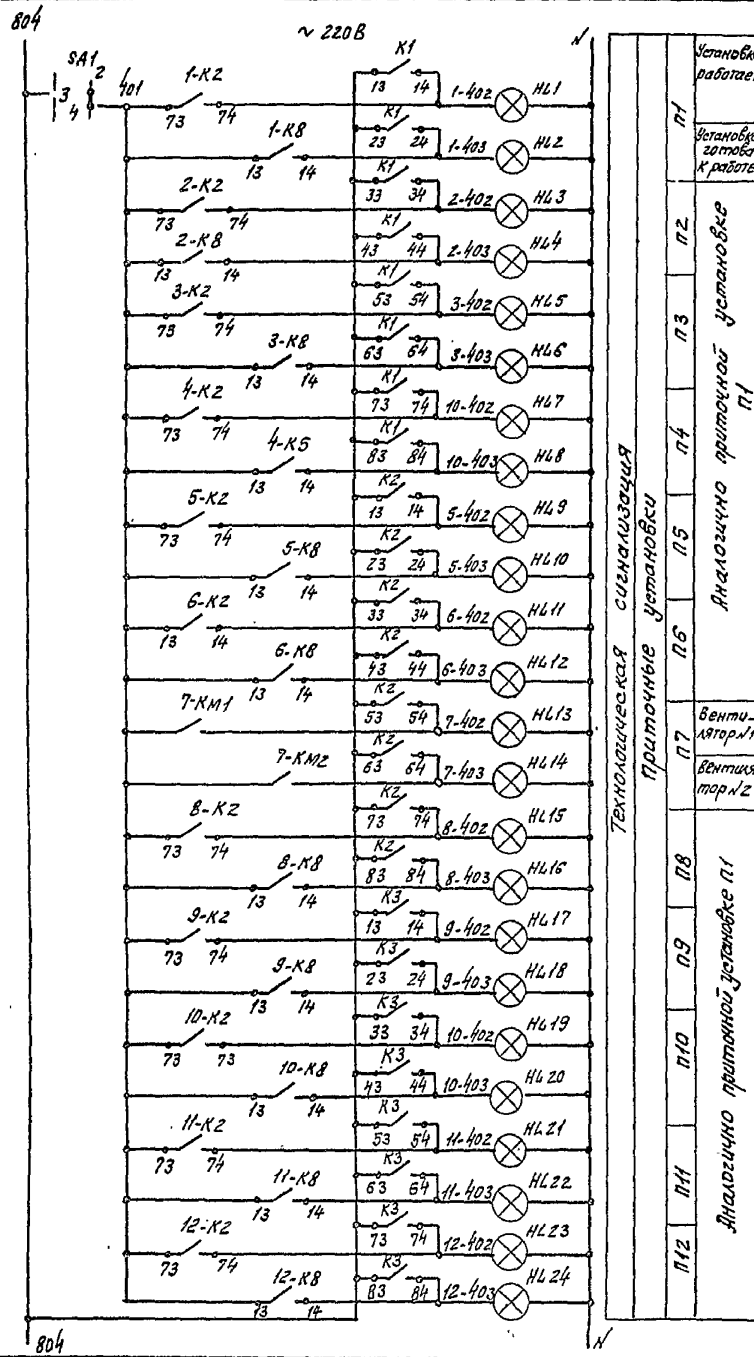 804
~ 220В
N
SA1
2
3
4
401
1-К2
73 74
К1
13 14
1-402
HL1
1-К8
13 14
К1
23 24
1-403
HL2
2-К2
73 74
К1
33 34
2-402
HL3
2-К8
13 14
К1
43 44
2-403
HL4
3-К2
73 74
К1
53 54
3-402
HL5
3-К8
13 14
К1
63 64
3-403
HL6
4-К2
73 74
К1
73 74
10-402
HL7
4-К5
13 14
К1
83 84
10-403
HL8
5-К2
73 74
К2
13 14
5-402
HL9
5-К8
13 14
К2
23 24
5-403
HL10
6-К2
13 14
К2
33 34
6-402
HL11
6-К8
13 14
К2
43 44
6-403
HL12
7-КМ1
К2
53 54
7-402
HL13
7-КМ2
К2
63 64
7-403
HL14
8-К2
73 74
К2
73 74
8-402
HL15
8-К8
13 14
К2
83 84
8-403
HL16
9-К2
73 74
К3
13 14
9-402
HL17
9-К8
13 14
К3
23 24
9-403
HL18
10-К2
73 73
К3
33 34
10-402
HL19
10-К8
13 14
К3
43 44
10-403
HL20
11-К2
73 74
К3
53 54
11-402
HL21
11-К8
13 14
К3
63 64
11-403
HL22
12-К2
73 74
К3
73 74
12-402
HL23
12-К8
13 14
К3
83 84
12-403
HL24
804
N
Технологическая сигнализация
Приточные установки
П1
П2
П3
П4
П5
П6
П7
П8
П9
П10
П11
П12
Установка
работает
Установка
готова
к работе
Аналогично приточной установке
П1
Венти-
лятор №1
Вентиля
тор №2
Аналогично приточной установке П1